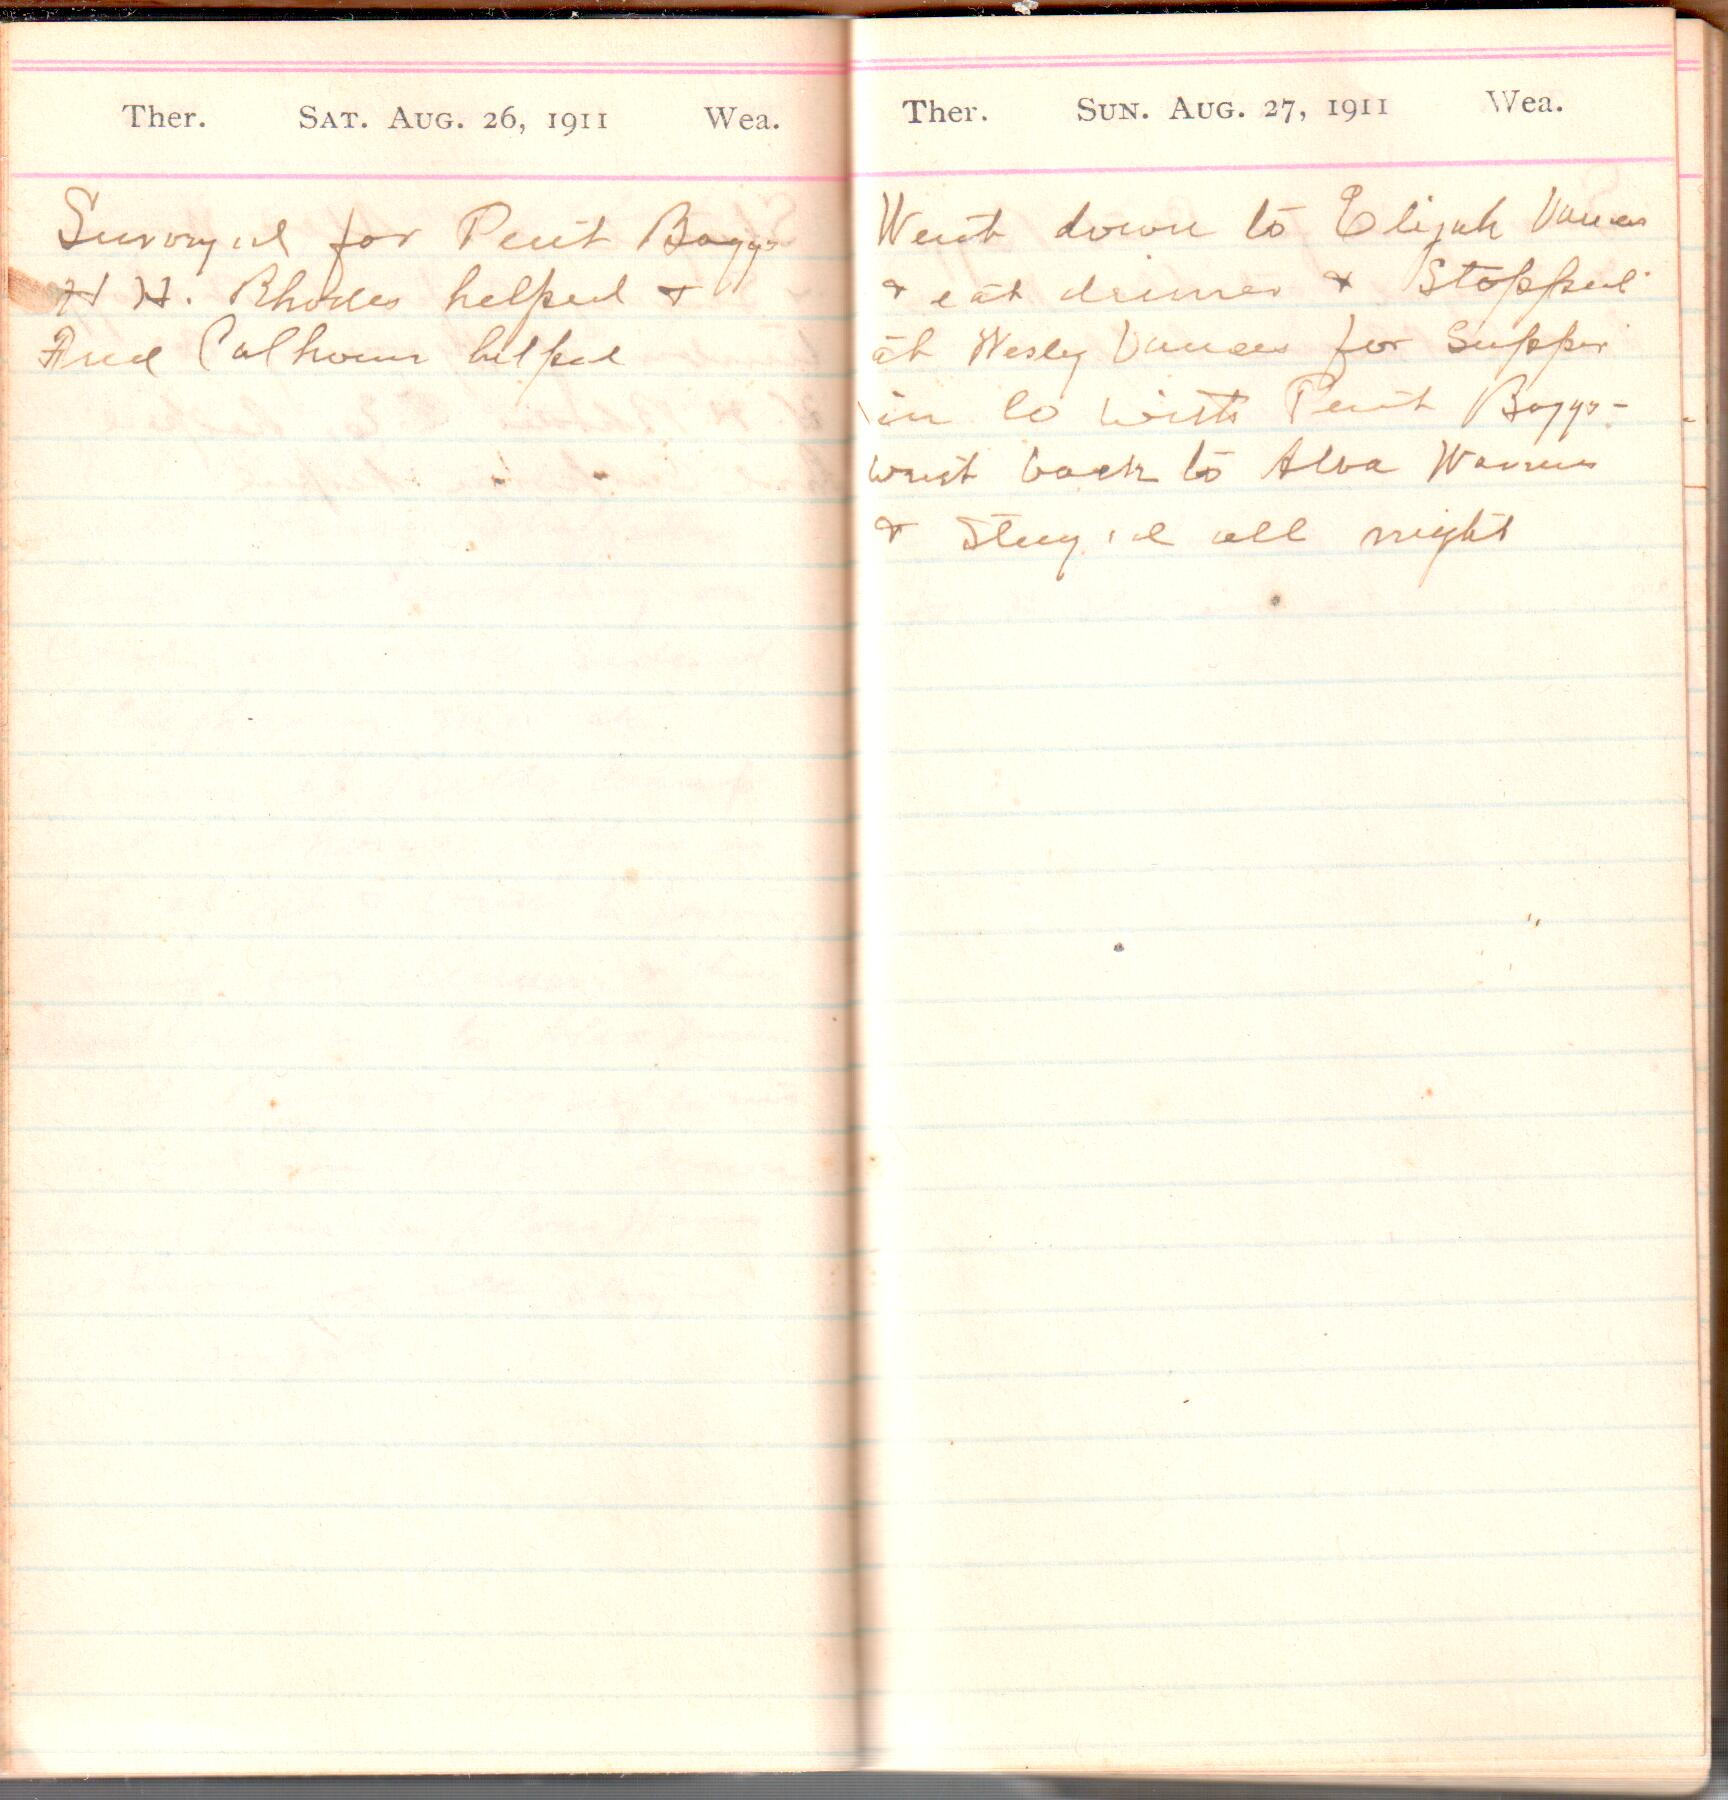 Ther. SAT. AUG. 26, 1911 Wea.
Surveyed for Perit Boggs
H H. Rhodes helped &
Fred Calhoun helped
Ther. SUN. AUG. 27, 1911 Wea.
Went down to Elijah Vances
& eat dinner & Stopped
at Wesley Vances for Supper
in Co with Perit Boggs -
went back to Alva Warrens
& Stayed all night